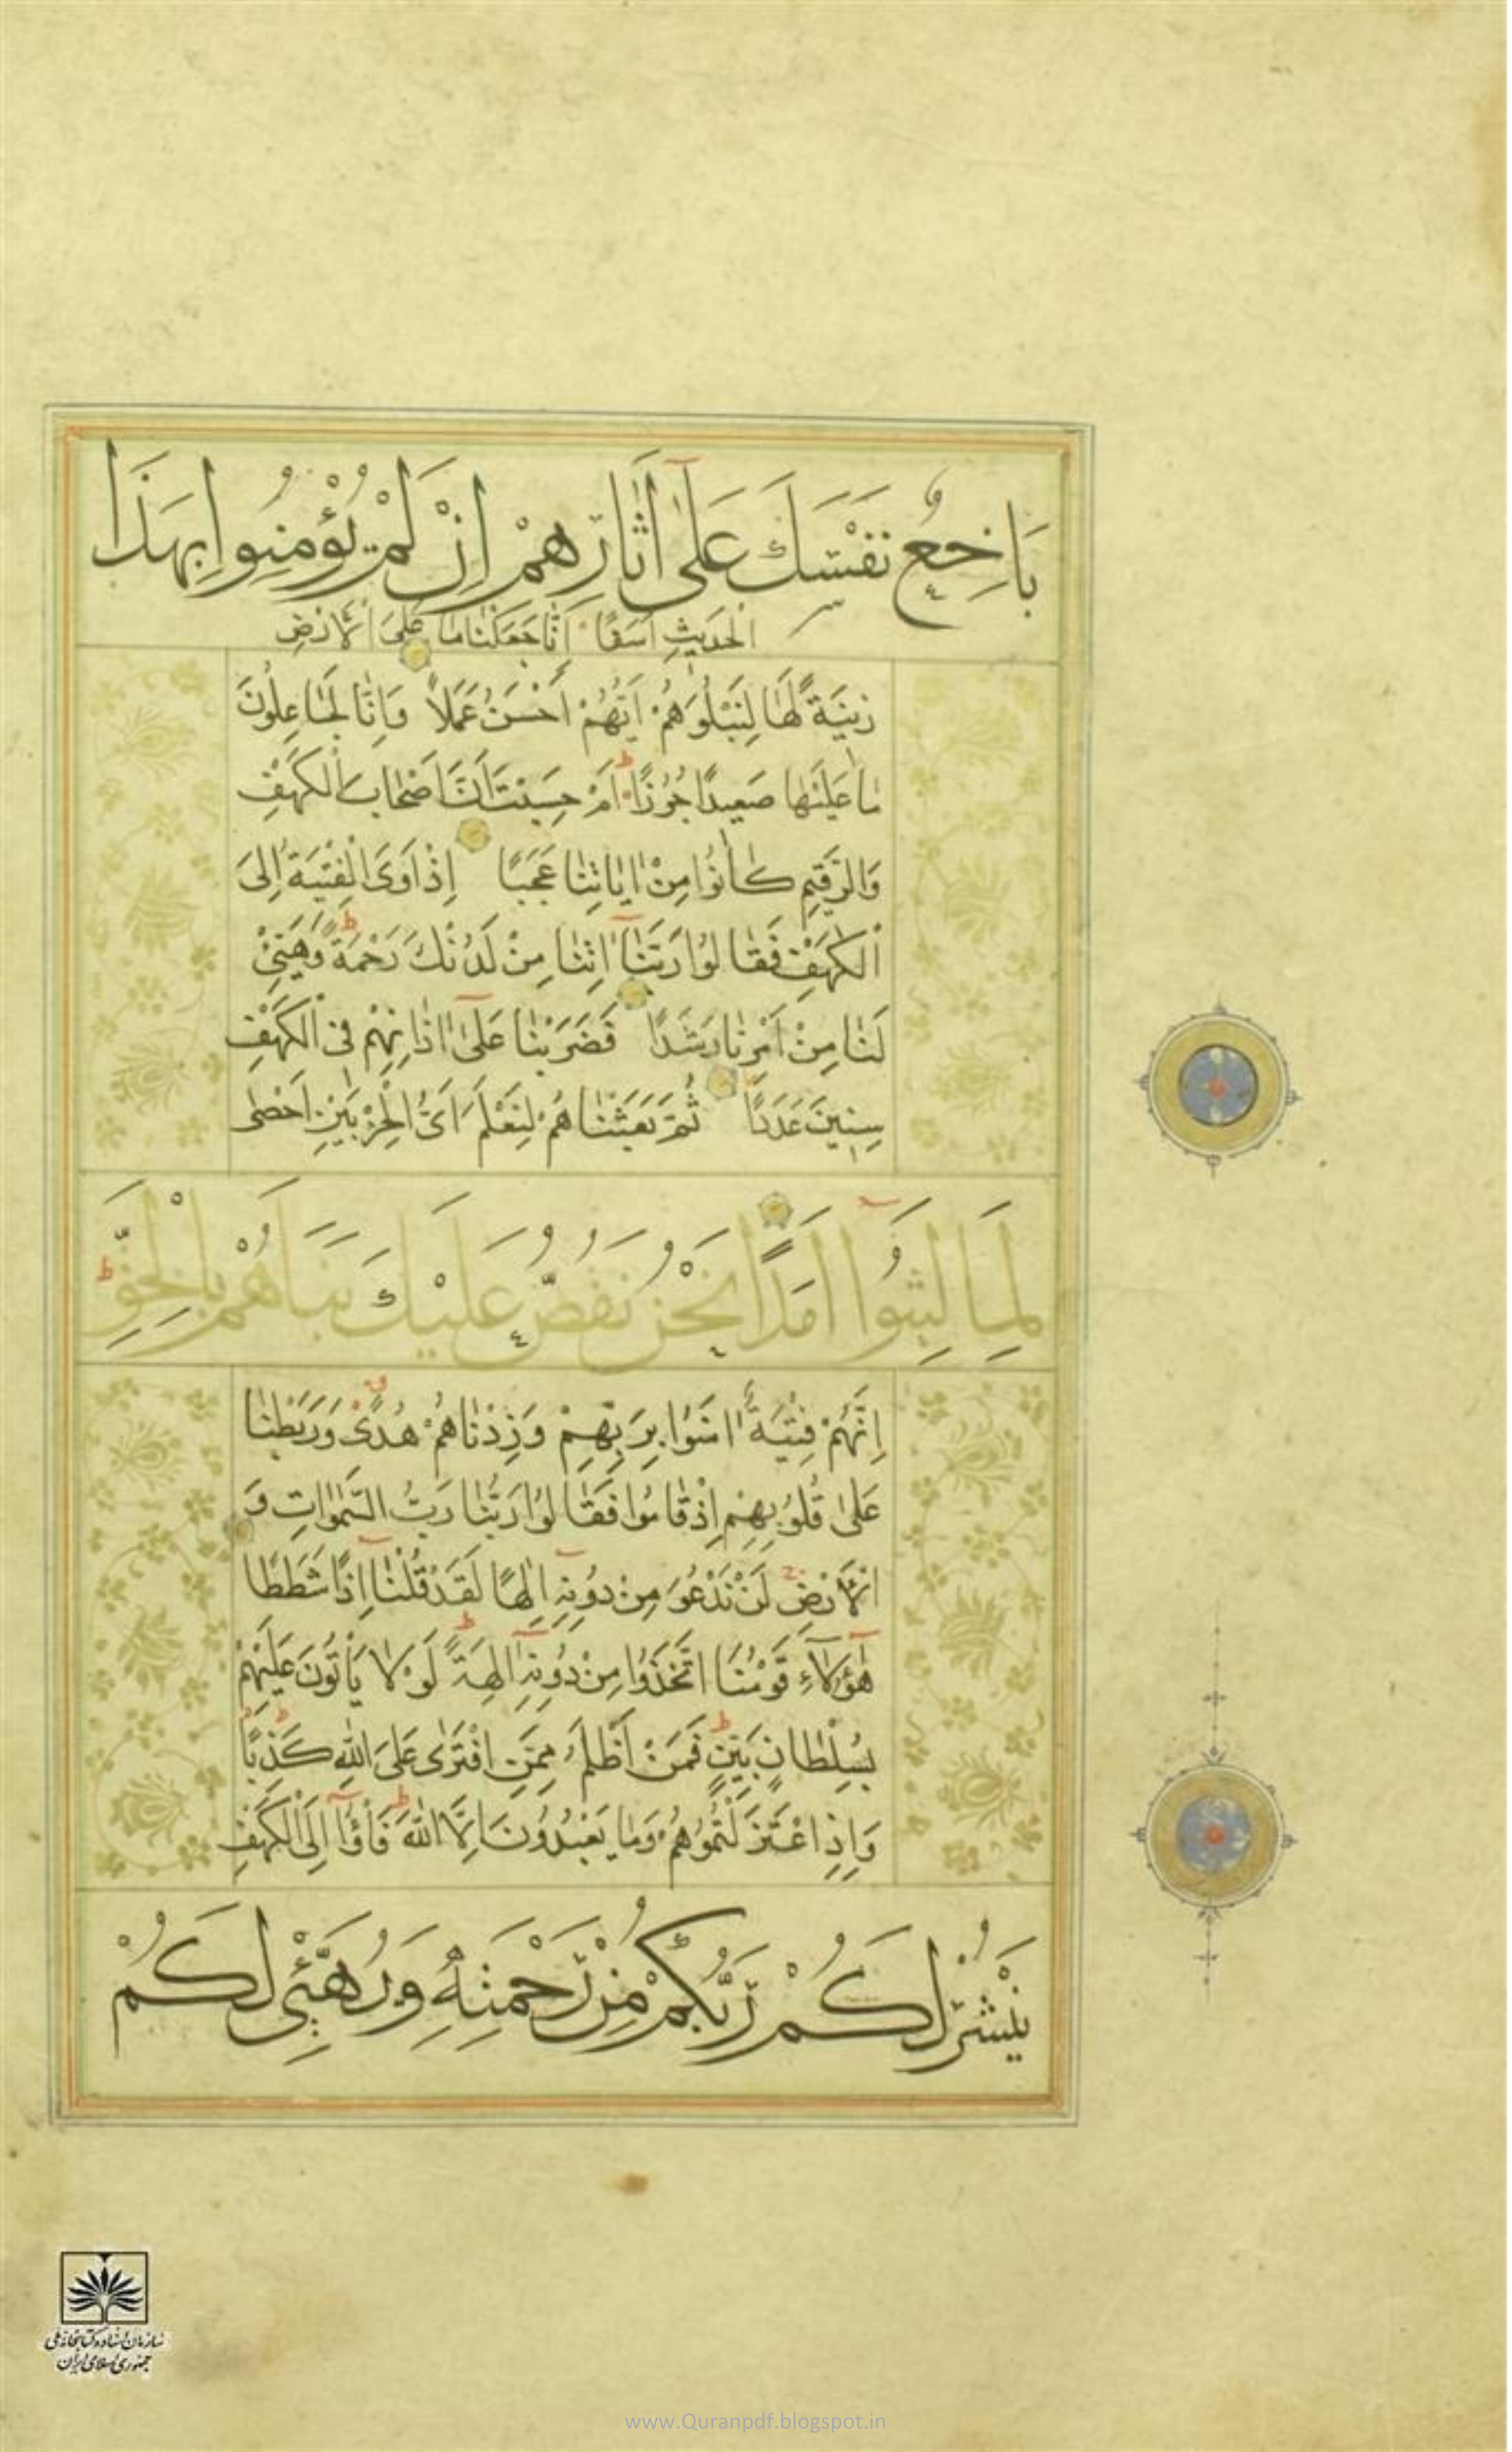 بَاخِعٌ نَفْسَكَ عَلٰٓى اٰثَارِهِمْ اِنْ لَمْ يُؤْمِنُوا بِهٰذَا
الْحَدِيثِ اَسَفًا اِنَّا جَعَلْنَا مَا عَلَى الْاَرْضِ
زِينَةً لَهَا لِنَبْلُوَهُمْ اَيُّهُمْ اَحْسَنُ عَمَلًا وَاِنَّا لَجَاعِلُونَ
مَا عَلَيْهَا صَعِيدًا جُرُزًا ط اَمْ حَسِبْتَ اَنَّ اَصْحَابَ الْكَهْفِ
وَالرَّقِيمِ كَانُوا مِنْ اٰيَاتِنَا عَجَبًا اِذْ اَوَى الْفِتْيَةُ اِلَى
الْكَهْفِ فَقَالُوا رَبَّنَآ اٰتِنَا مِنْ لَدُنْكَ رَحْمَةً وَهَيِّئْ
لَنَا مِنْ اَمْرِنَا رَشَدًا فَضَرَبْنَا عَلٰٓى اٰذَانِهِمْ فِى الْكَهْفِ
سِنِينَ عَدَدًا ثُمَّ بَعَثْنَاهُمْ لِنَعْلَمَ اَىُّ الْحِزْبَيْنِ اَحْصٰى
لِمَا لَبِثُوٓا اَمَدًا نَحْنُ نَقُصُّ عَلَيْكَ نَبَاَهُمْ بِالْحَقِّ ط
اِنَّهُمْ فِتْيَةٌ اٰمَنُوا بِرَبِّهِمْ وَزِدْنَاهُمْ هُدًى وَرَبَطْنَا
عَلٰى قُلُوبِهِمْ اِذْ قَامُوا فَقَالُوا رَبُّنَا رَبُّ السَّمٰوَاتِ وَ
الْاَرْضِ لَنْ نَدْعُوَ مِنْ دُونِهِٓ اِلٰهًا لَقَدْ قُلْنَآ اِذًا شَطَطًا
هٰٓؤُلَآءِ قَوْمُنَا اتَّخَذُوا مِنْ دُونِهِٓ اٰلِهَةً ط لَوْلَا يَأْتُونَ عَلَيْهِمْ
بِسُلْطَانٍ بَيِّنٍ ط فَمَنْ اَظْلَمُ مِمَّنِ افْتَرٰى عَلَى اللهِ كَذِبًا ط
وَاِذِ اعْتَزَلْتُمُوهُمْ وَمَا يَعْبُدُونَ اِلَّا اللهَ ط فَأْوُٓا اِلَى الْكَهْفِ
يَنْشُرْ لَكُمْ رَبُّكُمْ مِنْ رَحْمَتِهِ وَيُهَيِّئْ لَكُمْ
سازمان اسناد و کتابخانه ملی
جمهوری اسلامی ایران
www.Quranpdf.blogspot.in